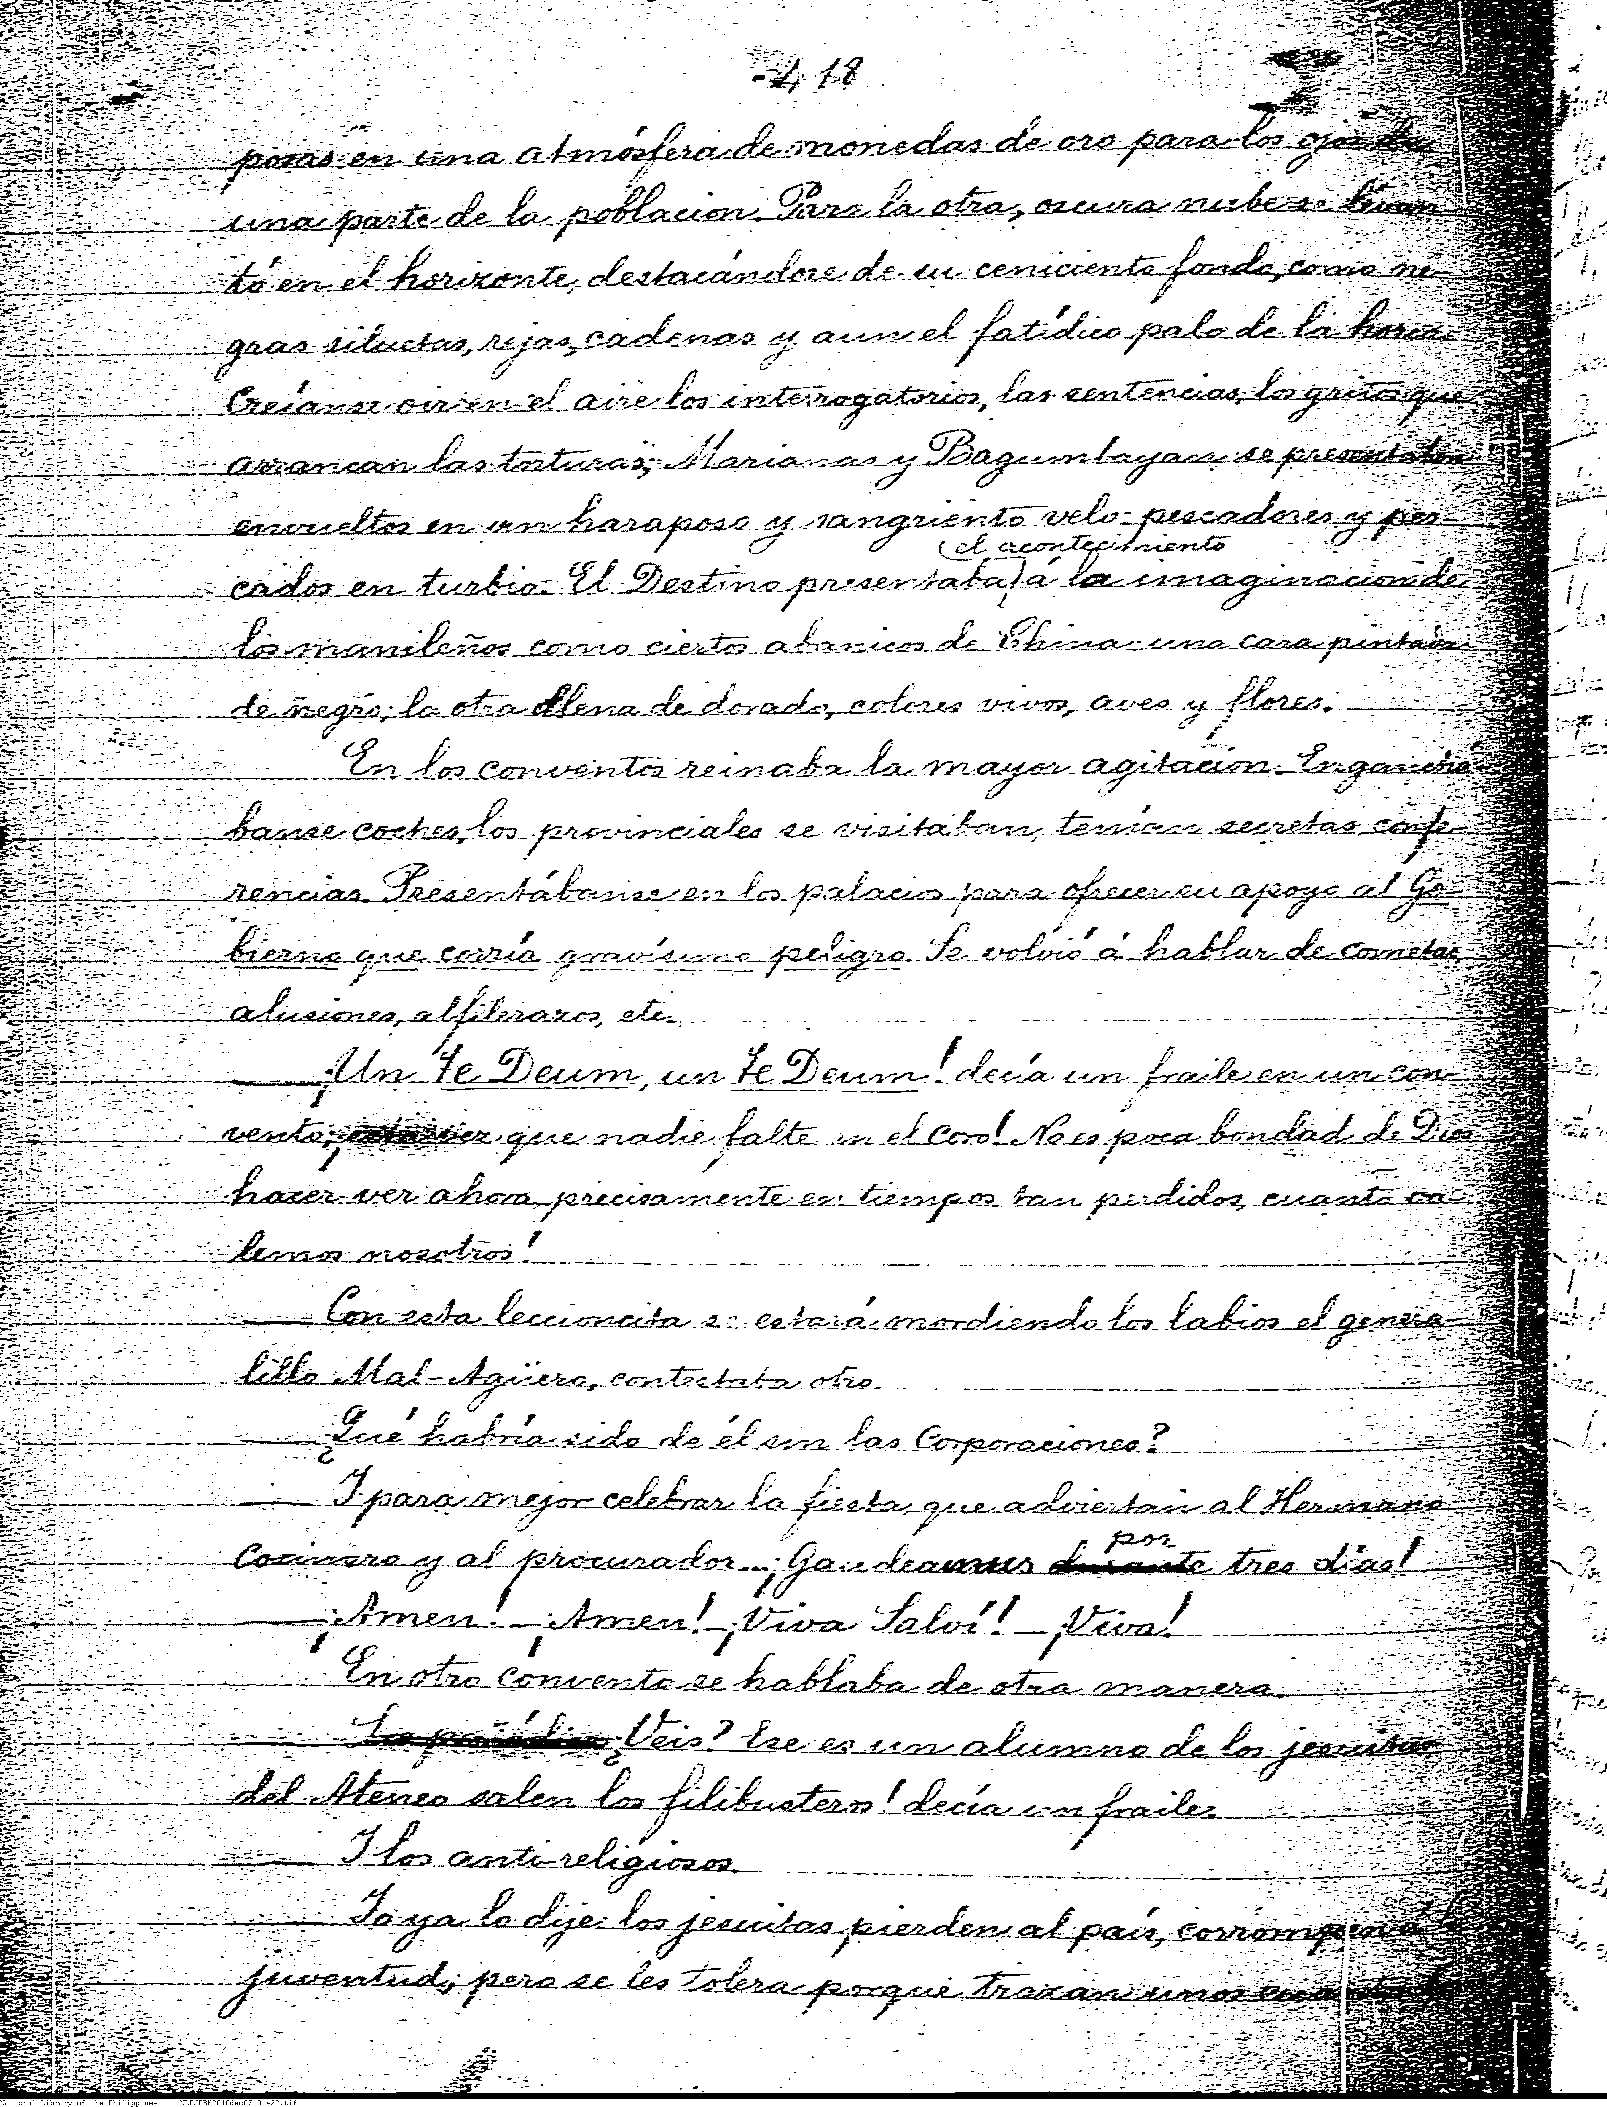 - 418
posas en una atmósfera de monedas de oro para los ojos de
una parte de la poblacion. Para la otra, oscura nube se levan
tó en el horizonte, destacándose de su ceniciento fondo, como ne-
gras siluetas, rejas, cadenas y aun el fatídico palo de la horca.
Creíanse oir en el aire los interrogatorios, las sentencias, los gritos que
arrancan las torturas; Marianas y Bagumbayan se presentaban
envueltos en un haraposo y sangriento velo: pescadores y pes-
el acontecimiento
cados en turbio. El Destino presentaba á la imaginacion de
los manileños como ciertos abanicos de China: una cara pintada
de negro; la otra llena de dorado, colores vivos, aves y flores.
En los conventos reinaba la mayor agitación. Enganchá-
banse coches, los provinciales se visitaban, tenían secretas confe-
rencias. Presentábanse en los palacios para ofrecer su apoyo al Go-
bierno que corría gravísimo peligro. Se volvió á hablar de cometas
alusiones, alfilerazos, etc.
—¡Un Te Deum, un Te Deum! decía un fraile en un con-
vento; que nadie falte en el coro! No es poca bondad de Dios
hacer ver ahora, precisamente en tiempos tan perdidos, cuanto va-
lemos nosotros!
— Con esta leccioncita se estará mordiendo los labios el genera-
lillo Mal-Agüero, contestaba otro.
— ¿Qué habría sido de él sin las Corporaciones?
— I para mejor celebrar la fiesta, que adviertan al Hermano
por
Cocinero y al procurador... ¡Gaudeamus durante tres días!
— ¡Amen! — ¡Amen! — ¡Viva Salví! — ¡Viva!
En otro convento se hablaba de otra manera.
¿Veis? Ese es un alumno de los jesuitas
del Ateneo salen los filibusteros! decía un fraile.
— I los anti-religiosos.
— Io ya lo dije: los jesuitas pierden al país, corrompen á
juventud; pero se les tolera porque trazan unos